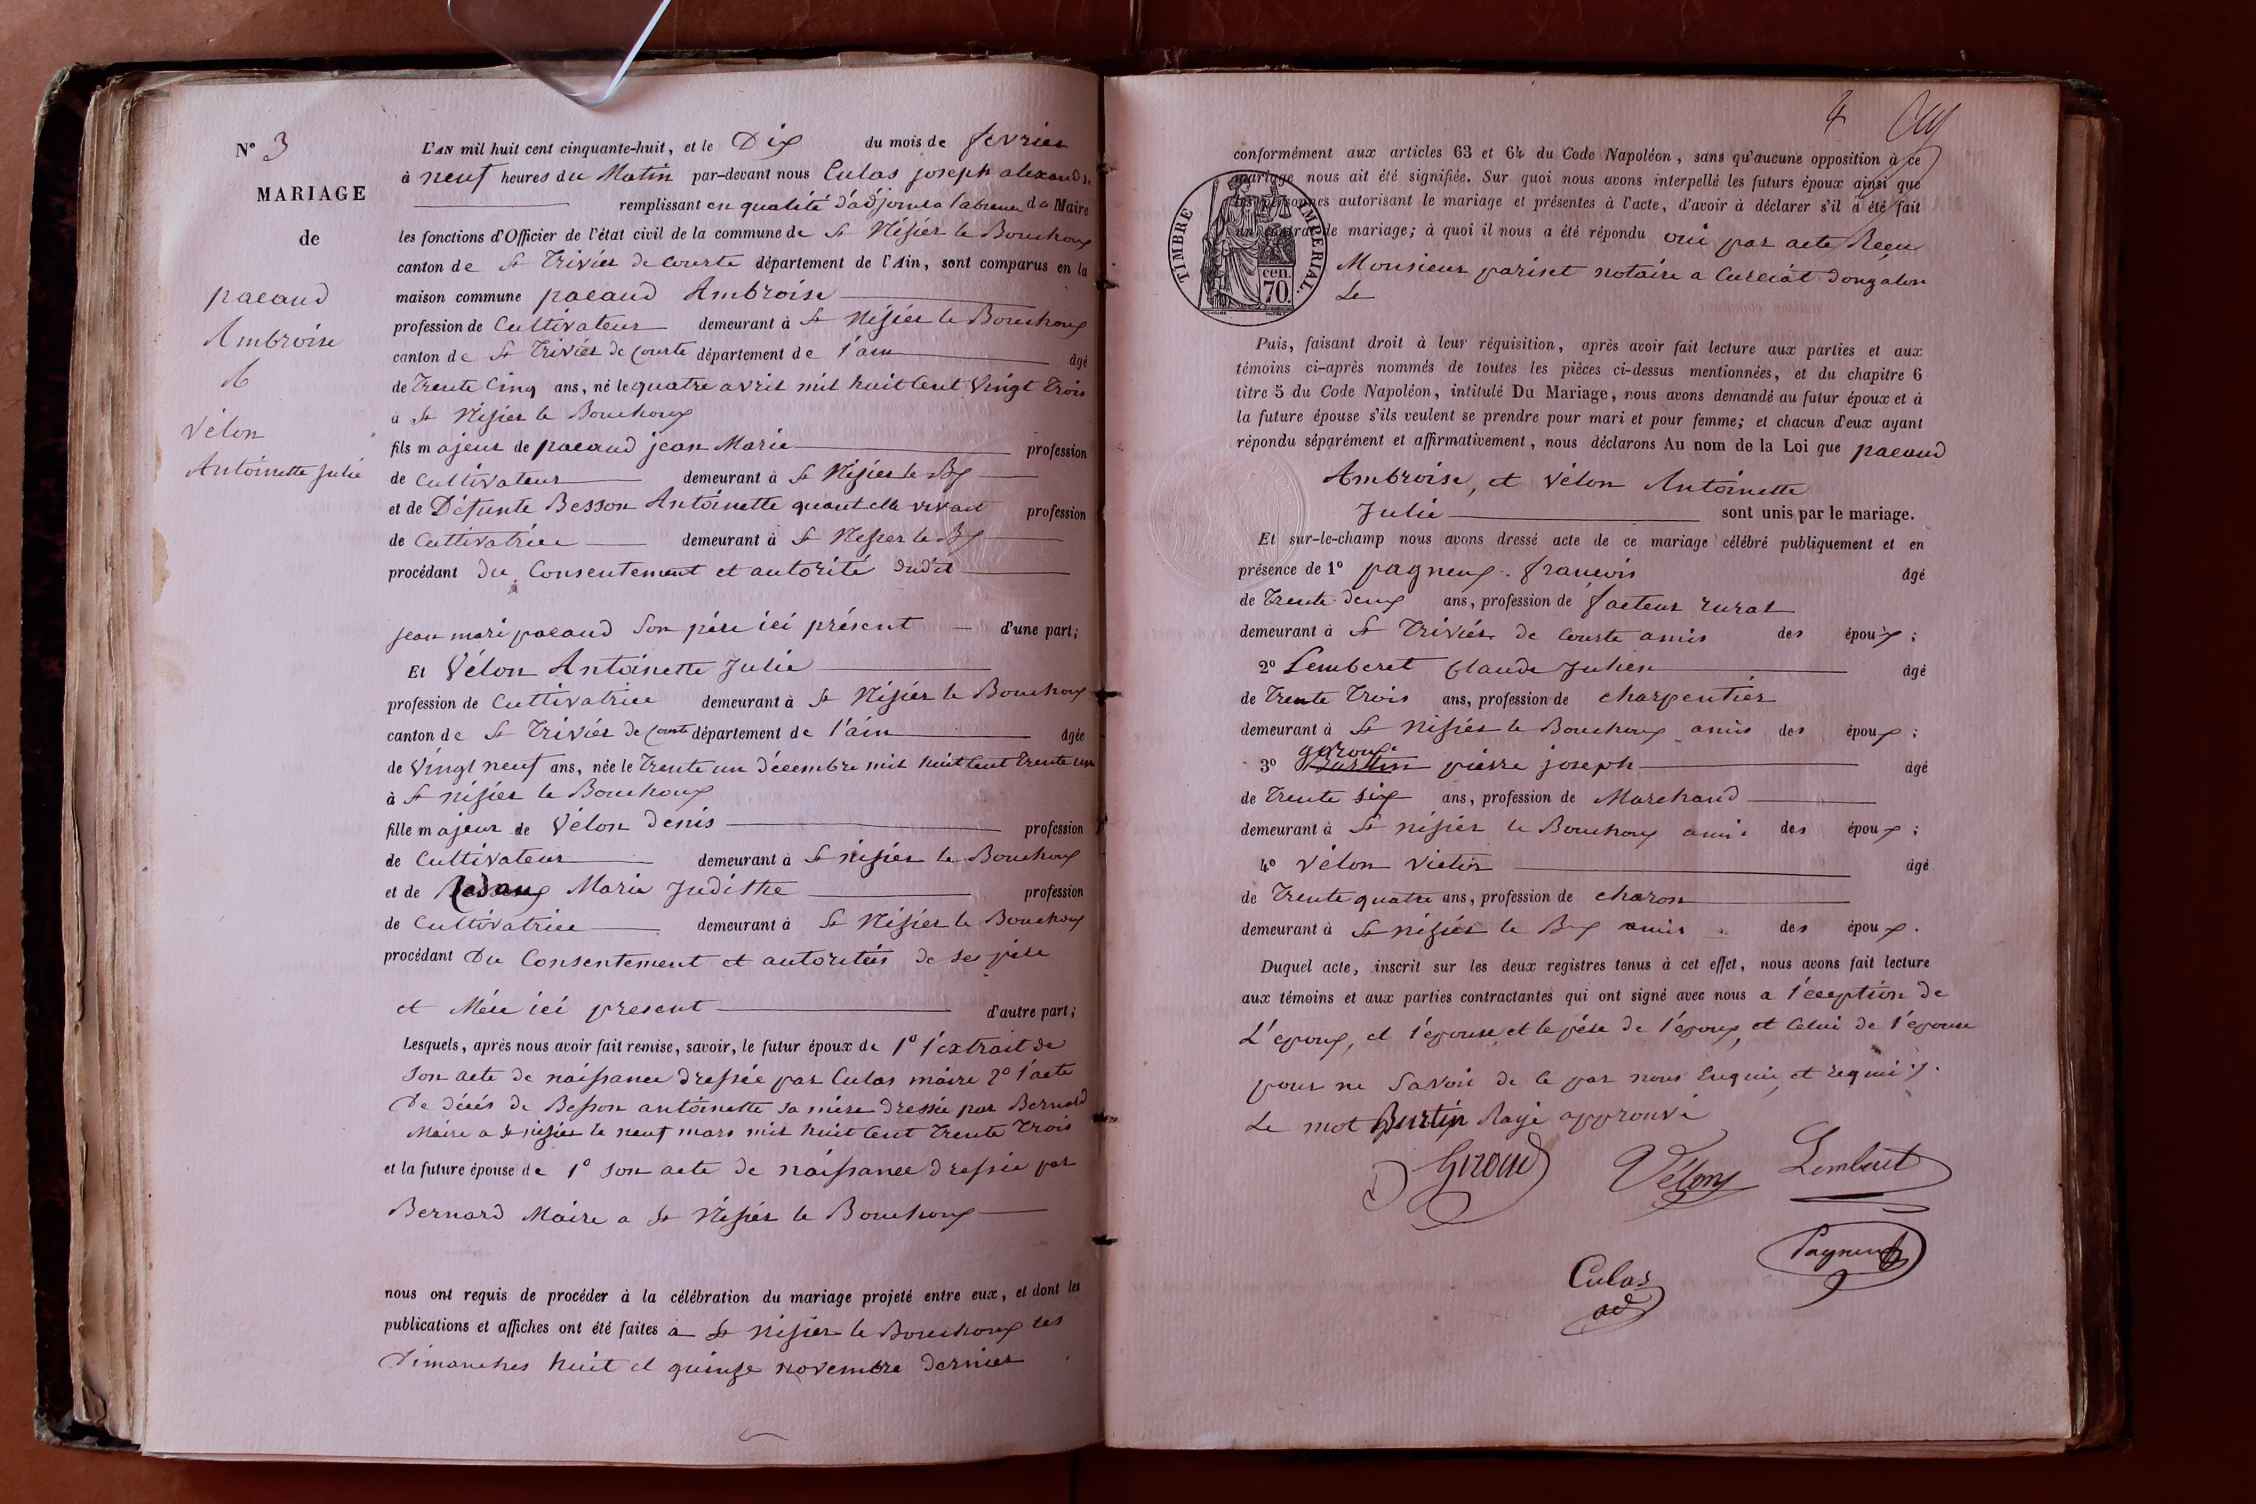 N° 3
MARIAGE
de
pacaud
Ambroise
&
Vélon
Antoinette Julie
L'AN mil huit cent cinquante-huit, et le Dix du mois de fevrier
à neuf heures du Matin par-devant nous Culas joseph alexandre
remplissant en qualité d'adjoint a l'absence du Maire
les fonctions d'Officier de l'état civil de la commune de St Nisier le Bouchoux
canton de St Trivier de Courte département de l'Ain, sont comparus en la
maison commune pacaud Ambroise
profession de Cultivateur demeurant à St Nisier le Bouchoux
canton de St Trivier de Courte département de l'ain âgé
de Trente Cinq ans, né le quatre avril mil huit Cent Vingt Trois
à St Nisier le Bouchoux
fils majeur de pacaud jean Marie profession
de Cultivateur demeurant à St Nisier le Bx
et de Défunte Besson Antoinette quant elle vivait profession
de Cultivatrice demeurant à St Nisier le Bx
procédant du Consentement et autorité dudit
jean mari pacaud Son père ici présent d'une part;
Et Vélon Antoinette Julie
profession de Cultivatrice demeurant à St Nisier le Bouchoux
canton de St Trivier de Courte département de l'ain âgée
de Vingt neuf ans, née le Trente un décembre mil huit Cent Trente un
à St nisier le Bouchoux
fille majeur de Vélon denis profession
de Cultivateur demeurant à St nisier le Bouchoux
et de Marie Judithe profession
de Cultivatrice demeurant à St Nisier le Bouchoux
procédant Du Consentement et autorités de ses père
et Mère ici présent d'autre part;
Lesquels, après nous avoir fait remise, savoir, le futur époux de 1° l'extrait de
Son acte de naissance dressée par Culas maire 2° l'acte
De décés de Besson antoinette sa mère dressée par Bernard
Maire a St nisier le neuf mars mil huit Cent Trente Trois
et la future épouse de 1° Son acte de naissance dressée par
Bernard Maire a St Nisier le Bouchoux
nous ont requis de procéder à la célébration du mariage projeté entre eux, et dont les
publications et affiches ont été faites à St nisier le Bouchoux les
Dimanches huit et quinze novembre dernier
4
conformément aux articles 63 et 64 du Code Napoléon, sans qu'aucune opposition à ce
mariage nous ait été signifiée. Sur quoi nous avons interpellé les futurs époux ainsi que
les personnes autorisant le mariage et présentes à l'acte, d'avoir à déclarer s'il a été fait
un contrat de mariage; à quoi il nous a été répondu oui par acte Reçu
Monsieur parisot notaire a Curciat dongalon
Le
TIMBRE IMPERIAL.
cen.
70
Puis, faisant droit à leur réquisition, après avoir fait lecture aux parties et aux
témoins ci-après nommés de toutes les pièces ci-dessus mentionnées, et du chapitre 6
titre 5 du Code Napoléon, intitulé Du Mariage, nous avons demandé au futur époux et à
la future épouse s'ils veulent se prendre pour mari et pour femme; et chacun d'eux ayant
répondu séparément et affirmativement, nous déclarons Au nom de la Loi que pacaud
Ambroise, et Vélon Antoinette
Julie sont unis par le mariage.
Et sur-le-champ nous avons dressé acte de ce mariage célébré publiquement et en
présence de 1° pagneux françois âgé
de Trente deux ans, profession de facteur rural
demeurant à St Trivier de Courte amis des époux;
2° Lemberet Claude Julien âgé
de Trente Trois ans, profession de charpentier
demeurant à St Nisier le Bouchoux amis des époux;
3° Burtin pierre joseph âgé
de Trente six ans, profession de Marchand
demeurant à St nisier le Bouchoux amis des époux;
4° Vélon Victor âgé
de Trente quatre ans, profession de charon
demeurant à St nisier le Bx amis des époux.
Duquel acte, inscrit sur les deux registres tenus à cet effet, nous avons fait lecture
aux témoins et aux parties contractantes qui ont signé avec nous a l'éception de
L'epoux, et l'epouse, et le père de l'epoux, et Celui de l'epouse
pour ne Savoir de ce par nous Enquis, et requis.
Le mot Burtin Rayé approuvé
Giroud Vélon Lemberet
Pagneux
Culas
adj